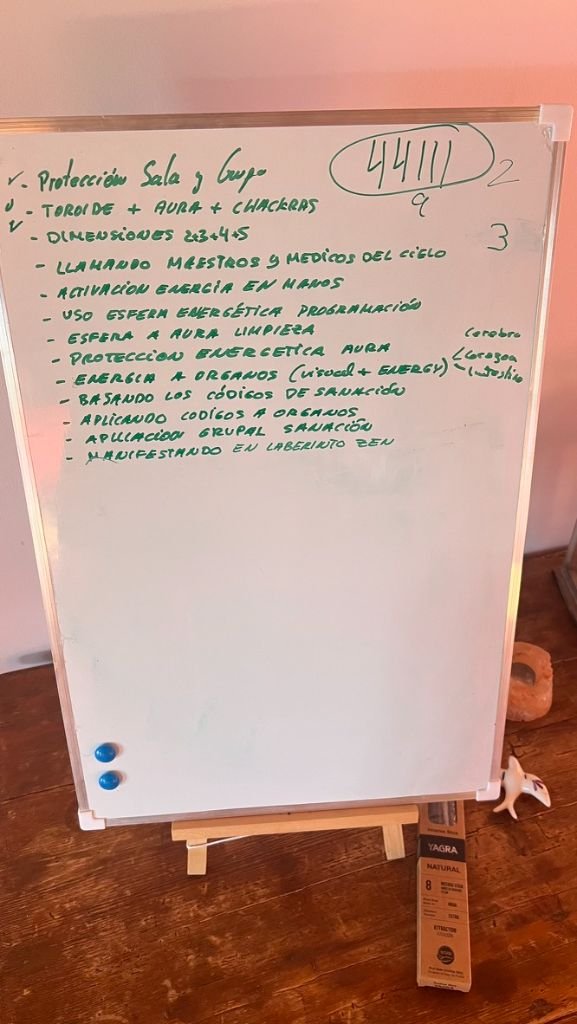 ✓ - Protección Sala y Grupo
✓ - TOROIDE + AURA + CHACKRAS
✓ - DIMENSIONES 2+3+4+5
- LLAMANDO MAESTROS y MEDICOS DEL CIELO
- ACTIVACION ENERGÍA EN MANOS
- USO ESFERA ENERGÉTICA PROGRAMACIÓN
- ESFERA A AURA LIMPIEZA
- PROTECCION ENERGETICA AURA
- ENERGIA A ORGANOS (visual + ENERGY)
Cerebro
Corazon
Intestino
- BASANDO LOS CÓDIGOS DE SANACIÓN
- APLICANDO CODIGOS A ORGANOS
- APLICACION GRUPAL SANACIÓN
- MANIFESTANDO EN LABERINTO ZEN
44111
9
2
3
YAGRA
NATURAL
8
ATTRACTION